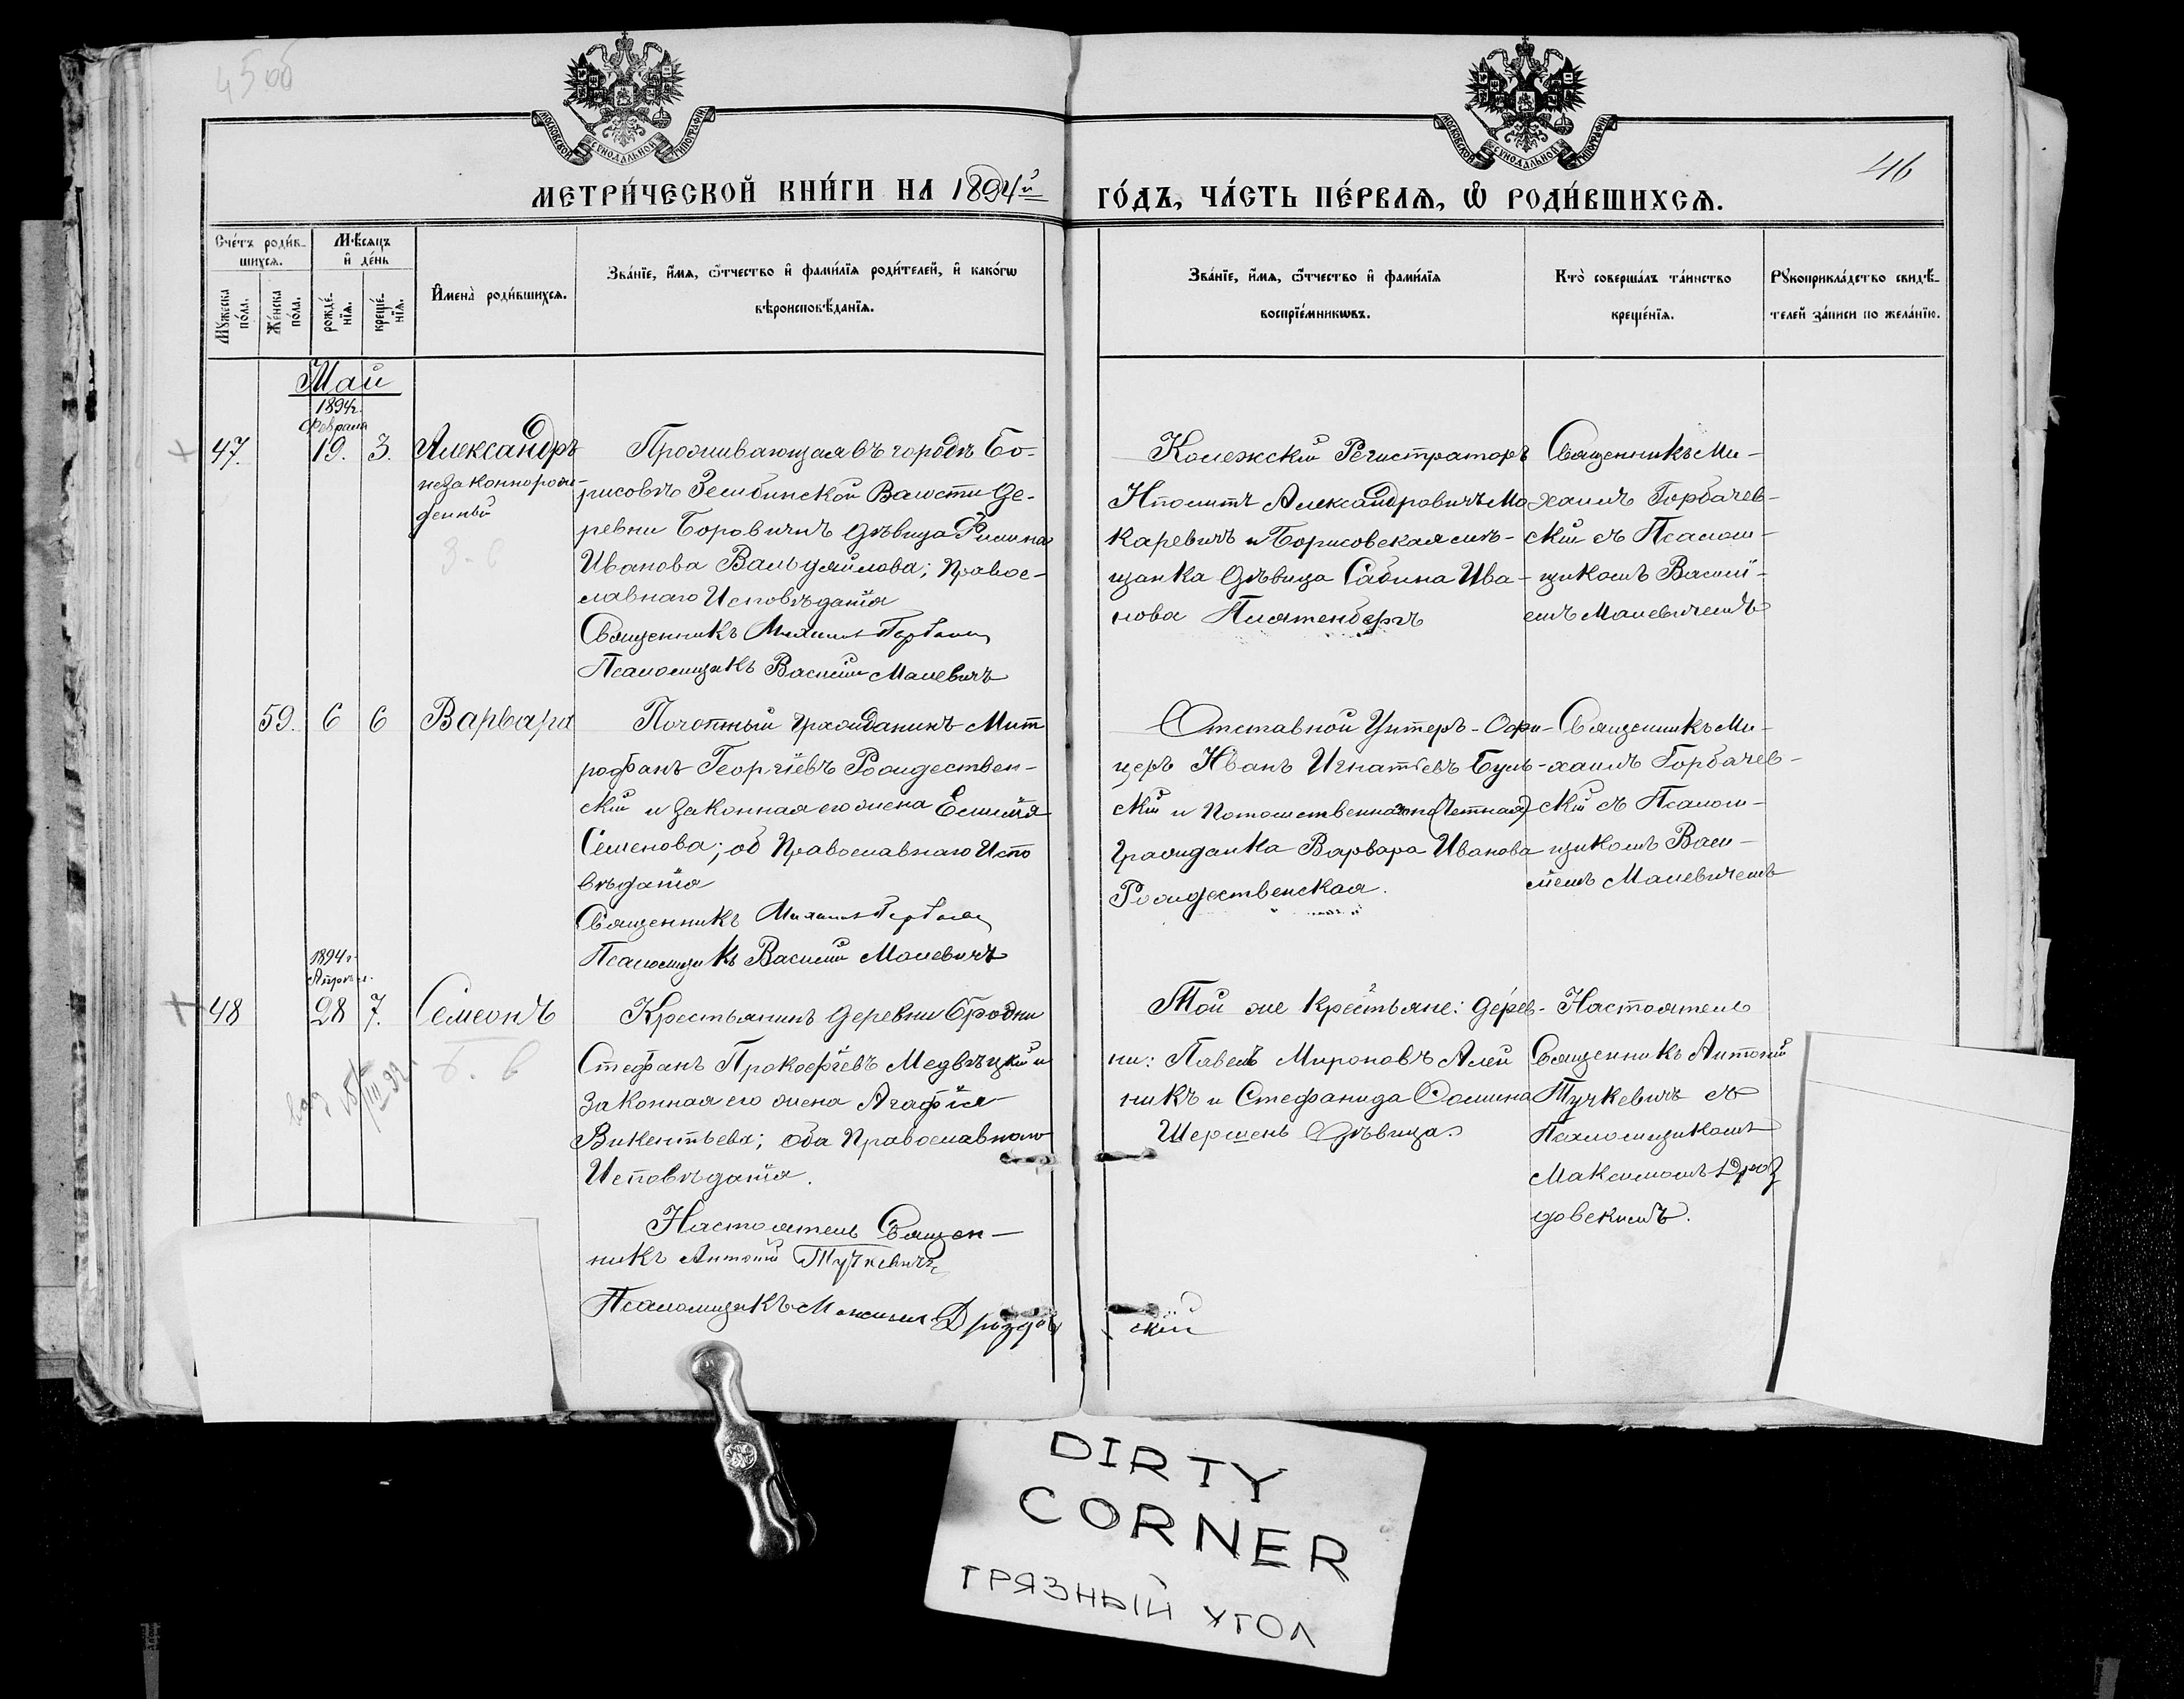 45об
МОСКОВСКОЙ СѴНОДАЛЬНОЙ ТИПОГРАФІИ
МОСКОВСКОЙ СѴНОДАЛЬНОЙ ТИПОГРАФІИ
46
МЕТРИ́ЧЕСКОЙ КНИ́ГИ НА 1894й ГО́ДЪ, ЧА́СТЬ ПЕ́РВАѦ, Ѽ РОДИ́ВШИХСѦ.
Сче́тъ роди́в-
шихсѧ.
Мѣ́сяцъ
и҆ де́нь
Мꙋ́жеска
по́ла.
Же́нска
по́ла.
рожде́-
нїѧ.
креще́-
нїѧ.
И҆мена̀ роди́вшихсѧ.
Зва́нїе, и҆́мѧ, ѻ҆́тчество и҆ фами́лїѧ роди́телей, и҆ како́гѡ
вѣроисповѣ́данїѧ.
Зва́нїе, и҆́мѧ, ѻ҆́тчество и҆ фами́лїѧ
воспрїе́мникѡвъ.
Кто̀ соверша́лъ та́инство
креще́нїѧ.
Рꙋкоприкла́дство свидѣ́-
телей за́писи по жела́нїю.
Май
1894г.
Февраля
47. 19. 3. Александръ
незаконнорож-
денный
З. в
Проживающая въ городѣ Бо-
рисовѣ Зембинской Волости Де-
ревни Боровичъ дѣвица
Иванова ; Правос-
лавнаго Исповѣданія
Священникъ Михаилъ Горбачев
Псаломщикъ Василій Малевичъ
Колежскій Регистраторъ
Иполитъ Александровичъ Ма-
каревичъ и Борисовская мѣ-
щанка дѣвица Сабина Ива-
нова
Священникъ Ми-
хаилъ Горбачев-
скій съ Псалом-
щикомъ Василі-
емъ Малевичемъ
59. 6 6 Варвара
Почотный гражданинъ Мит
рофанъ Георгіевъ Рождествен-
скій и законная его жена
Семенова; об Православнаго Испо
вѣданія
Священникъ Михаилъ Горбачев
Псаломщикъ Василій Малевичъ
Отставной Унтеръ-Офи-
церъ Иванъ Игнатьевъ Буль-
скій и Потомственная по(Четная)
гражданка Варвара Иванова
Рождественская.
Священникъ Ми-
хаилъ Горбачев-
скій съ Псалом-
щикомъ Васи-
ліемъ Малевичемъ
1894г.
Апрѣля.
48 28 7. Семеонъ
Крестьянинъ деревни Бродни
Стефанъ Прокофіевъ Медвѣцкій и
законная его жена Агафія
Викентьева; оба Православнаго
Исповѣданія.
Настоятель Священ-
никъ Антоній Тучкевичъ
Псаломщикъ Максимъ Дроздов
скій
Той же Крестьяне: дерев-
ни: Павелъ Мироновъ Алей
никъ и Стефанида Фомина
Шершень Дѣвица.
Настоятель
Священникъ Антоній
Тучкевичъ съ
Псаломщикомъ
Максимомъ Дроз
довскимъ.
DIRTY
CORNER
ГРЯЗНЫЙ УГОЛ